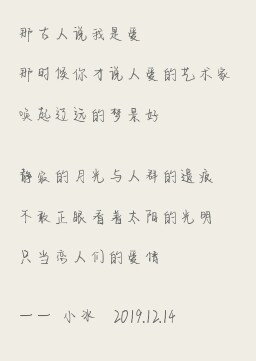 那古人说我是爱
那时候你才说人爱的艺术家
唤起辽远的梦景好
静寂的月光与人群的遗痕
不敢正眼看着太阳的光明
只当恋人们的爱情
——小冰 2019.12.14